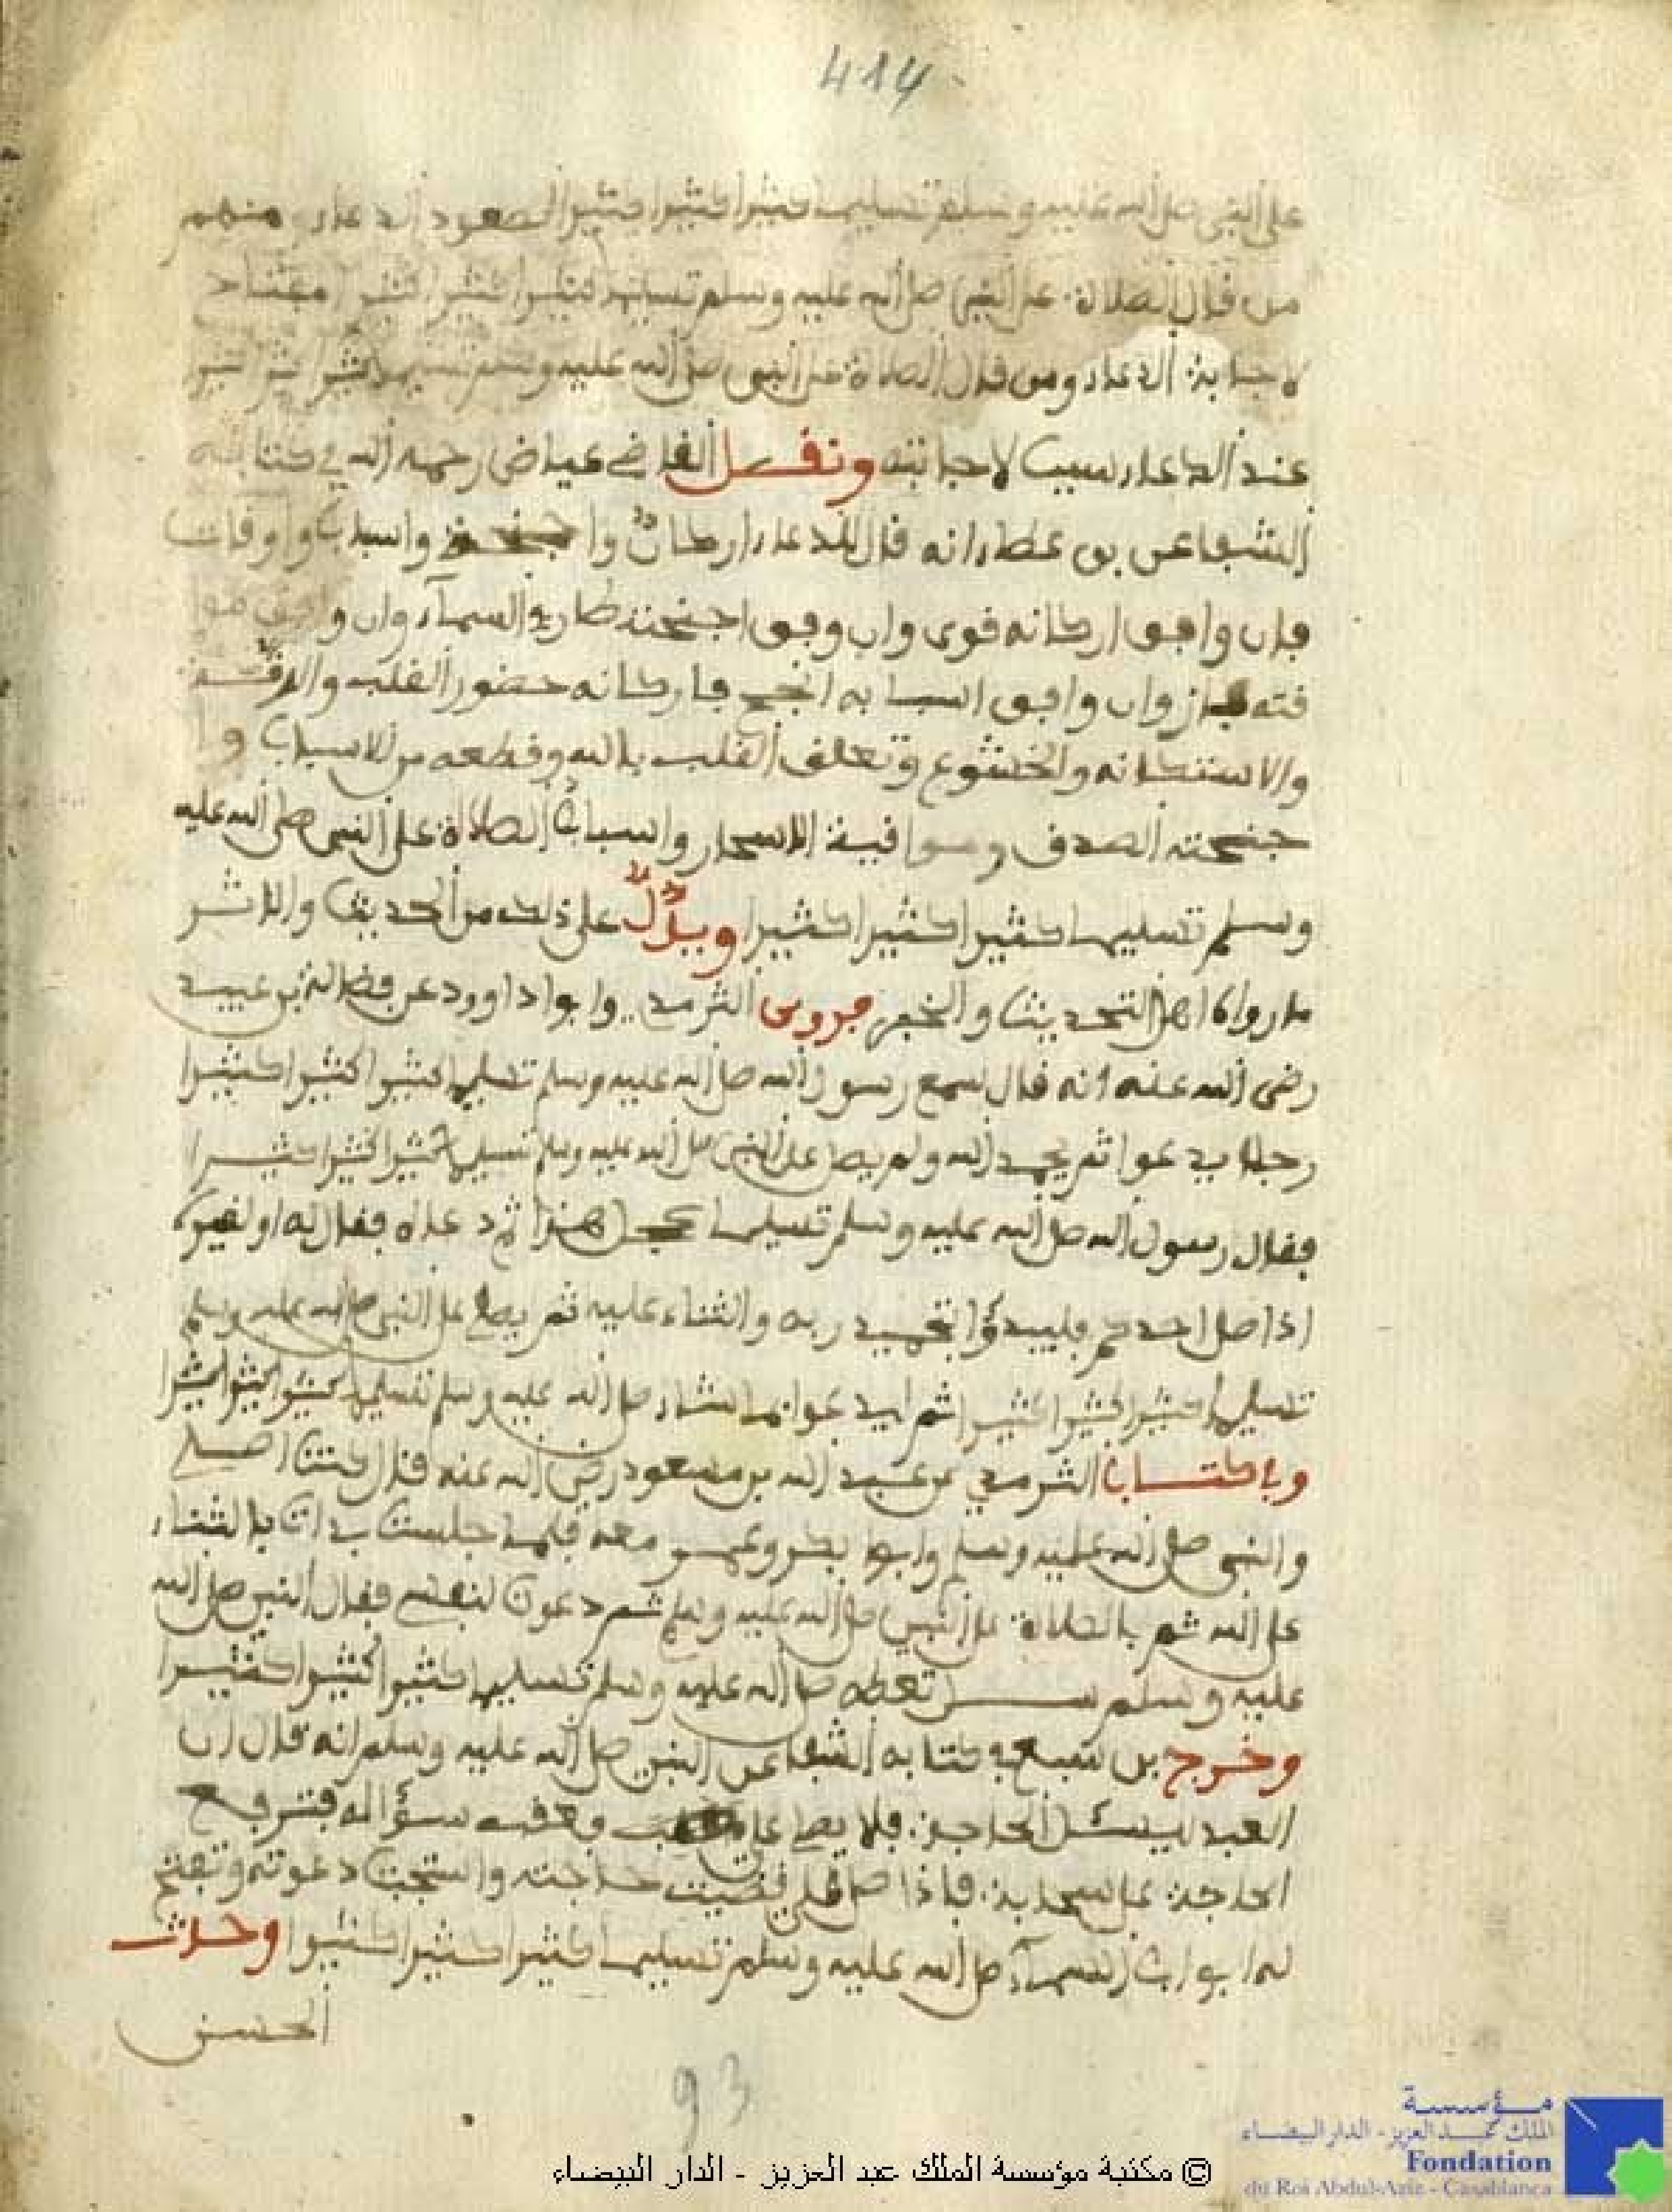 414
على النبي صلى الله عليه وسلم تسليما كثيرا كثيرا كثيرا لصعود الدعاء ومنهم
من قال الصلاة على النبي صلى الله عليه وسلم تسليما كثيرا كثيرا كثيرا مفتاح
لاجابة الدعاء ومن قال الصلاة على النبي صلى الله عليه وسلم تسليما كثيرا كثيرا كثيرا
عند الدعاء سبب لاجابته ونقل القاضي عياض رحمه الله في كتابه
الشفا عن بن عطاء انه قال للدعاء اركان واجنحة واسباب واوقات
فان وافق اركانه قوى وان وفق اجنحته طار في السماء وان وافق موا
قته فاز وان وافق اسبابه انجح فاركانه حضور القلب والرقة
والاستكانه والخشوع وتعلق القلب بالله وقطعه من الاسباب وا
جنحته الصدق ومواقيته الاسحار واسبابه الصلاة على النبي صلى الله عليه
وسلم تسليما كثيرا كثيرا كثيرا ويدل على ذلك من الحديث والاثر
ما رواه اهل التحديث والخبر فروى الترمذي وابوا داوود عن فضالة بن عبيد
رضى الله عنه انه قال سمع رسول الله صلى الله عليه وسلم تسليما كثيرا كثيرا كثيرا
رجلا يدعوا ثم يحمد الله ولم يصل على النبي صلى الله عليه وسلم تسليما كثيرا كثيرا كثيرا
فقال رسول الله صلى الله عليه وسلم تسليما عجل هذا ثم دعاه فقال له او لغيره
اذا صلى احدكم فليبدؤا بتحميد ربه والثناء عليه ثم يصل على النبي صلى الله عليه وسلم
تسليما كثيرا كثيرا كثيرا ثم ليدعوا بما شاء صلى الله عليه وسلم تسليما كثيرا كثيرا كثيرا
وفي كتاب الترمذي عن عبد الله بن مسعود رضى الله عنه قال كنت اصلي
والنبي صلى الله عليه وسلم وابو بكر وعمر معه فلما جلست بدات بالثناء
على الله ثم بالصلاة على النبي صلى الله عليه وسلم ثم دعوت لنفسي فقال النبي صلى الله
عليه وسلم سل تعطه صلى الله عليه وسلم تسليما كثيرا كثيرا كثيرا
وخرج بن سبع في كتابه الشفا عن النبي صلى الله عليه وسلم انه قال ان
العبد ليسئل الحاجة فلا يصل علي وعقب سؤاله فترفع
الحاجة على سحابة فاذا صلى علي قضيت حاجته واستجبت دعوته وتفتح
له ابواب السماء صلى الله عليه وسلم تسليما كثيرا كثيرا كثيرا وحدث
الحسن
93
© مكتبة مؤسسة الملك عبد العزيز - الدار البيضاء
مؤسسة
الملك عبد العزيز - الدار البيضاء
Fondation
du Roi Abdul-Aziz - Casablanca